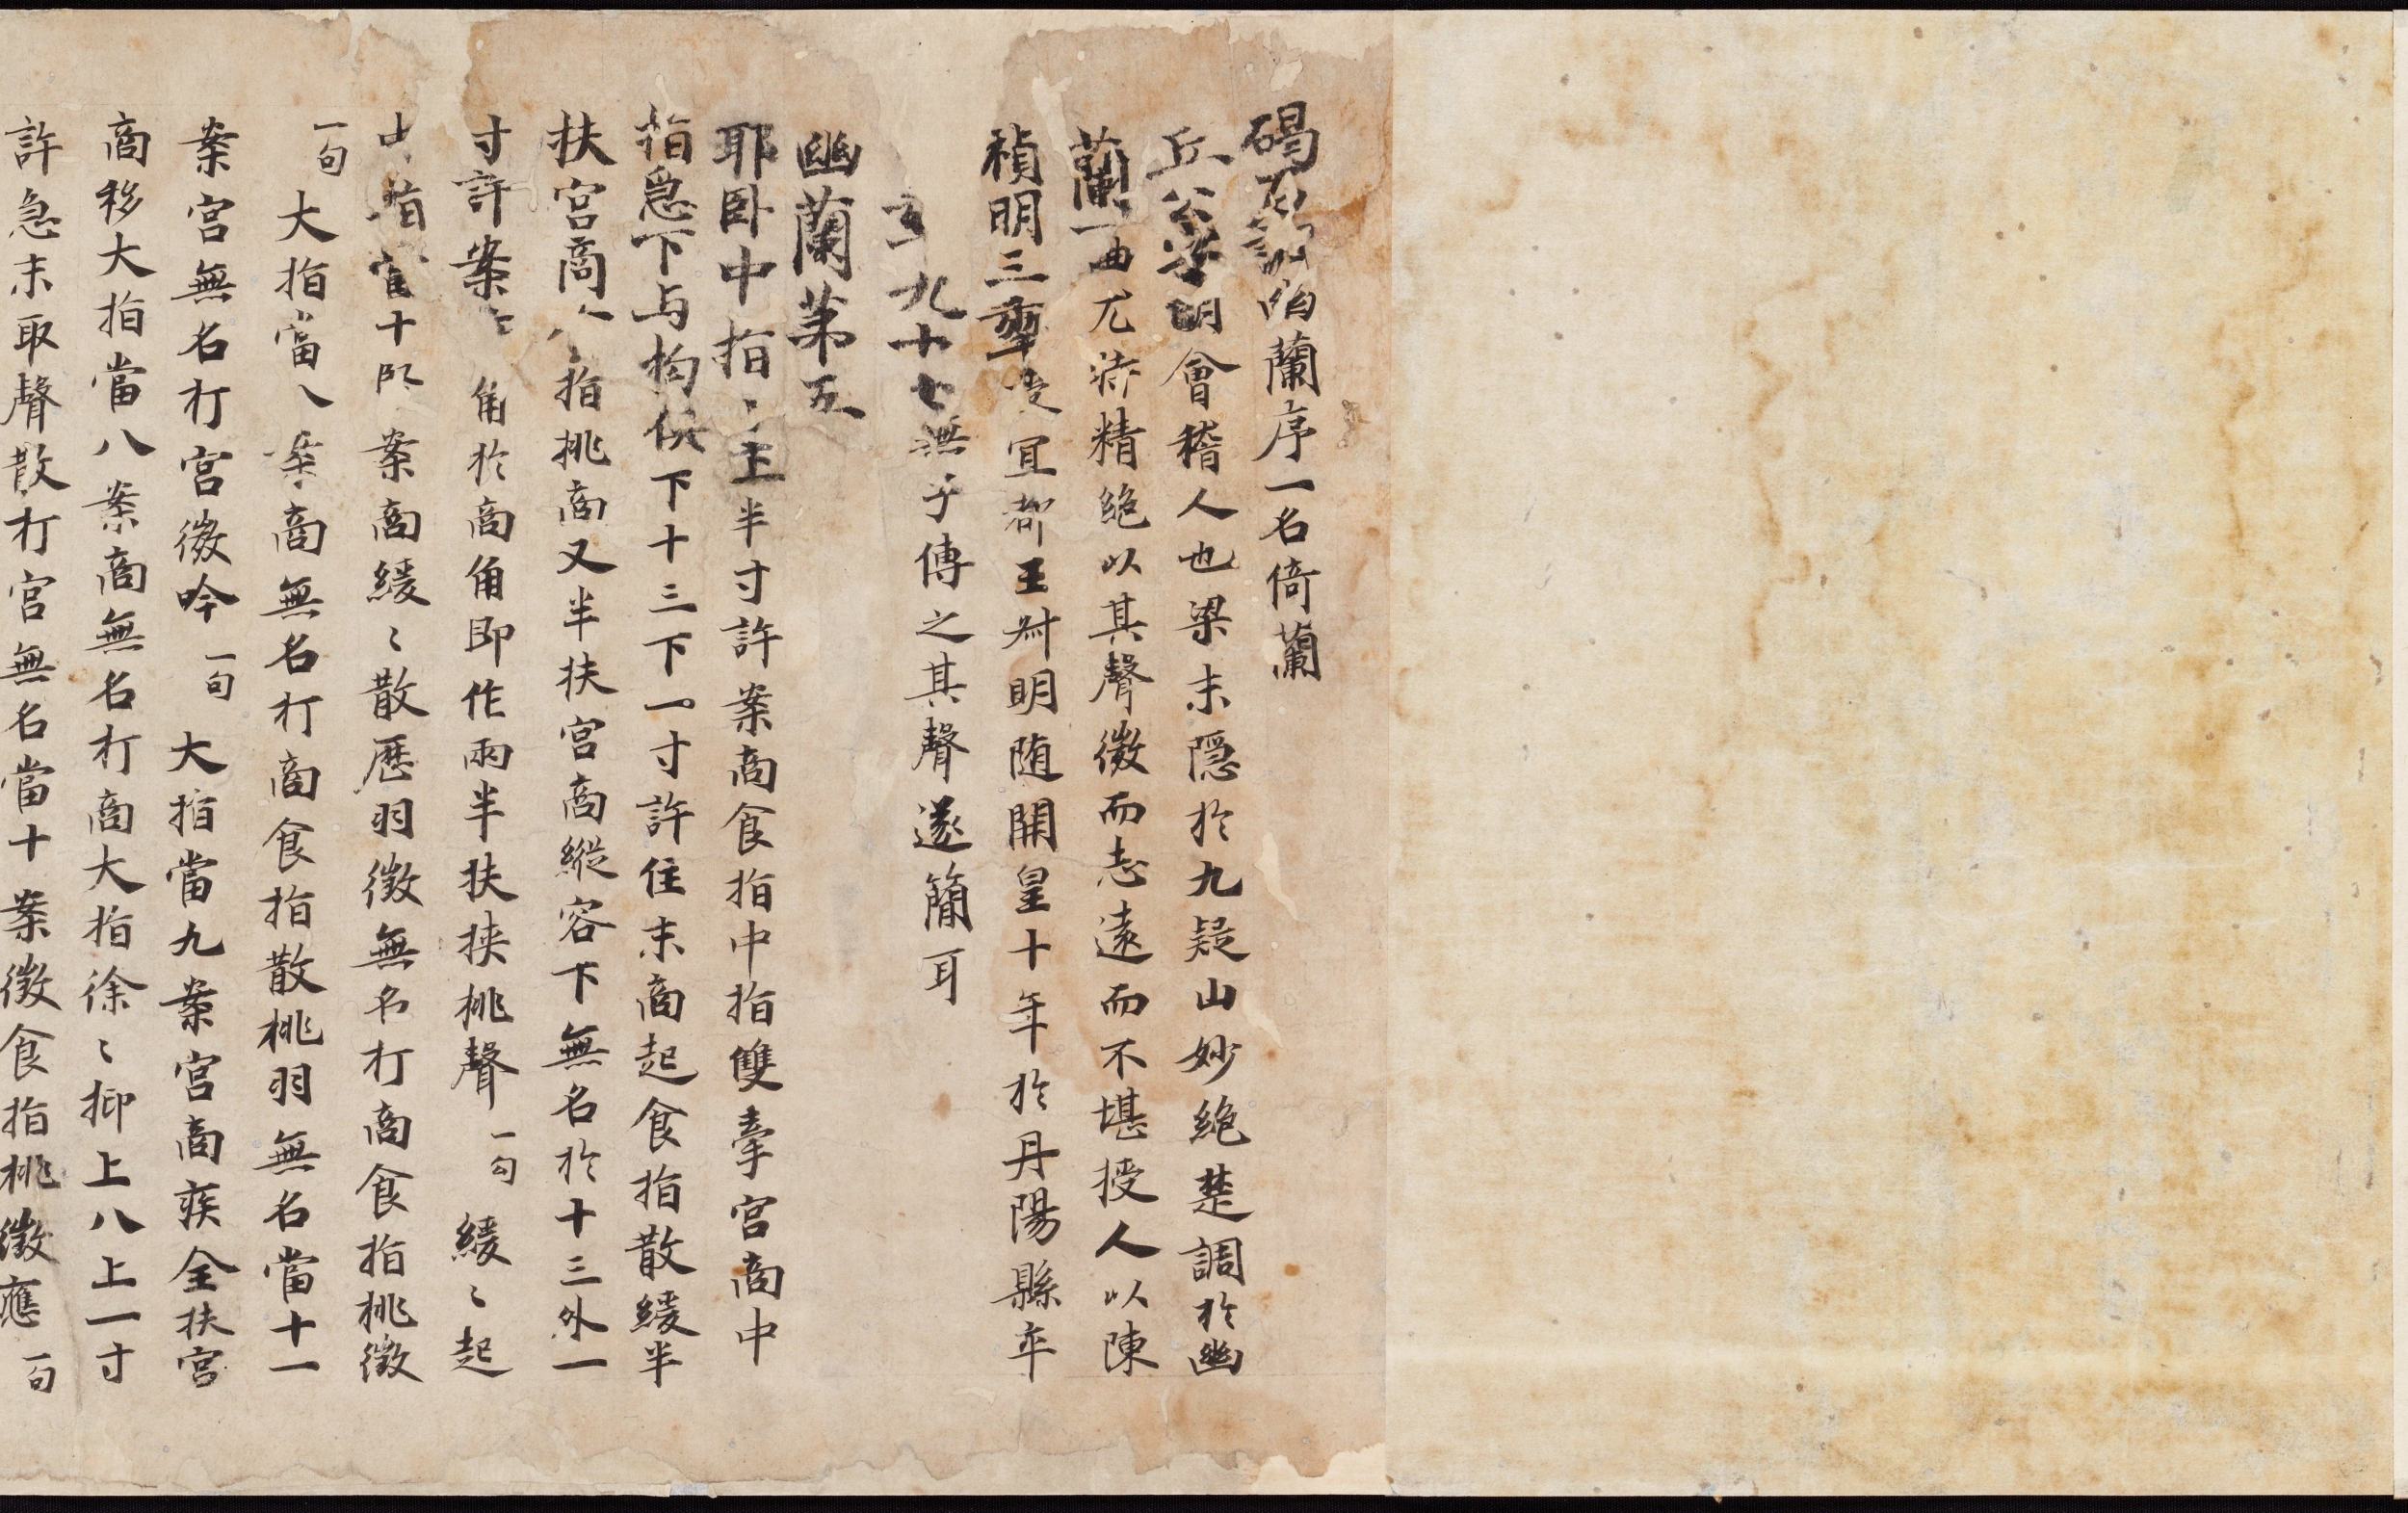 碣石調幽蘭序一名倚蘭
丘公字明會稽人也梁末隱於九疑山妙絕楚調於幽
蘭一曲尤淸精絕以其聲微而志遠而不堪授人以陳
禎明三年授宜都王叔明随開皇十年於丹陽縣卒
九十七無子傳之其聲遂簡耳
幽蘭苐五
耶臥中指〻上半寸許案商食指中指雙牽宮商中
指急下与拘俱下十三下一寸許住末商起食指散緩半
扶宮商 指挑商又半扶宮商縱容下無名於十三外一
寸許案 角於商角即作兩半扶挾挑聲一句 緩〻起
指當十 案商緩〻散歷羽徵無名打商食指挑徵
一句 大指當八案商無名打商食指散挑羽無名當十一
案宮無名打宮徵吟一句 大指當九案宮商疾全扶宮
商移大指當八案商無名打商大指徐〻抑上八上一寸
許急末取聲散打宮無名當十案徵食指挑徵應一句